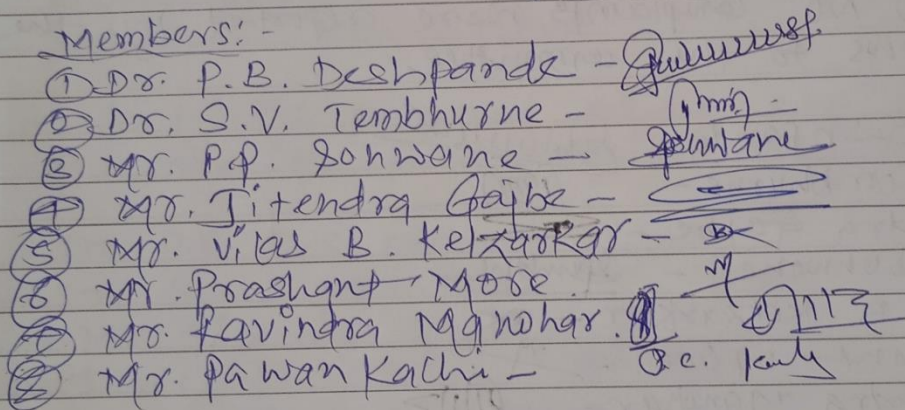 Members:-
① Dr. P.B. Deshpande -
② Dr. S.V. Tembhurne -
③ Mr. P.P. Sonwane - Sonwane
④ Mr. Jitendra Gajbe -
⑤ Mr. Vilas B. Kelzarkar -
⑥ Mr. Prashant More
⑦ Mr. Ravindra Manohar.
⑧ Mr. Pawan Kachi -